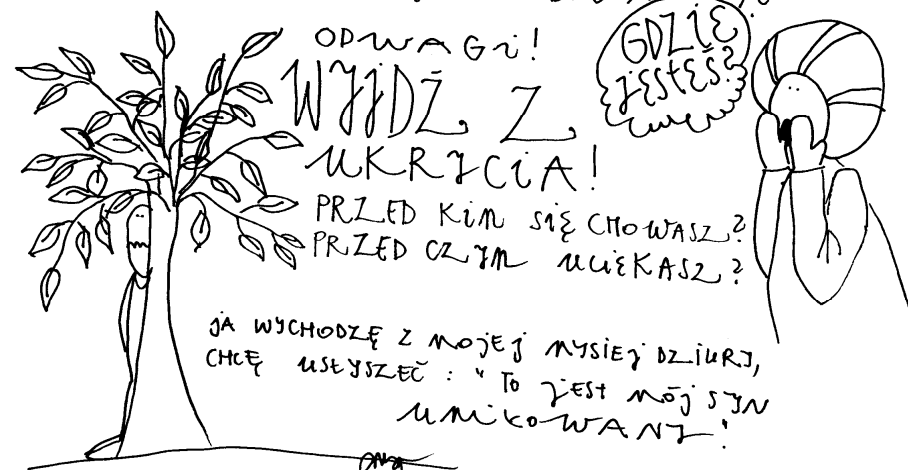 ODWAGI!
WYJDŹ Z
UKRYCIA!
GDZIE
JESTEŚ?
PRZED KIM SIĘ CHOWASZ?
PRZED CZYM UCIEKASZ?
JA WYCHODZĘ Z MOJEJ MYSIEJ DZIURY,
CHCĘ USŁYSZEĆ: "TO JEST MÓJ SYN
UMIŁOWANY"